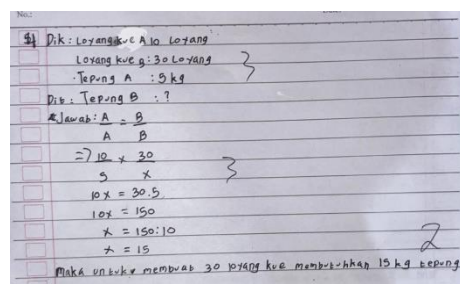 No.:
Dik: Loyang kue A 10 Loyang
Loyang kue B: 30 Loyang
Tepung A : 5 kg
3
Dit: Tepung B : ?
Jawab: A = B
A B
=> 10 x 30
5 x
3
10x = 30.5
10x = 150
x = 150:10
x = 15
2
Maka untuk membuat 30 loyang kue membutuhkan 15 kg tepung